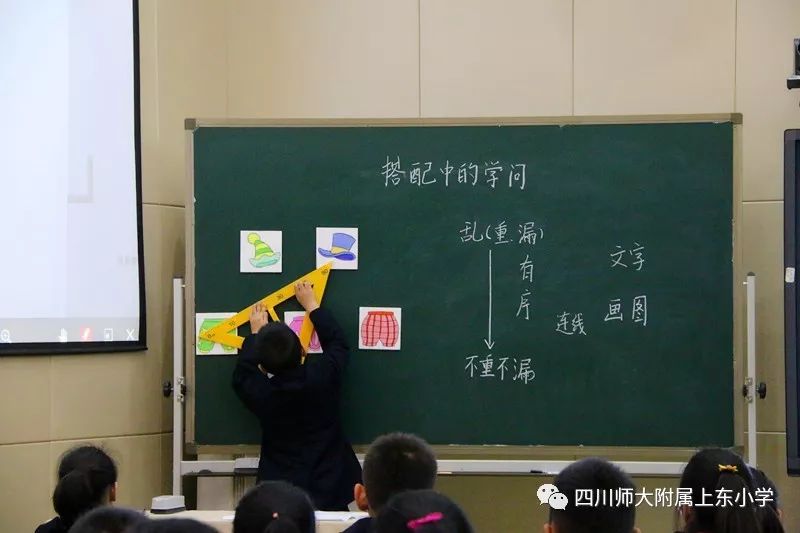 搭配中的学问
乱(重.漏)
有序
文字
连线
画图
不重不漏
四川师大附属上东小学